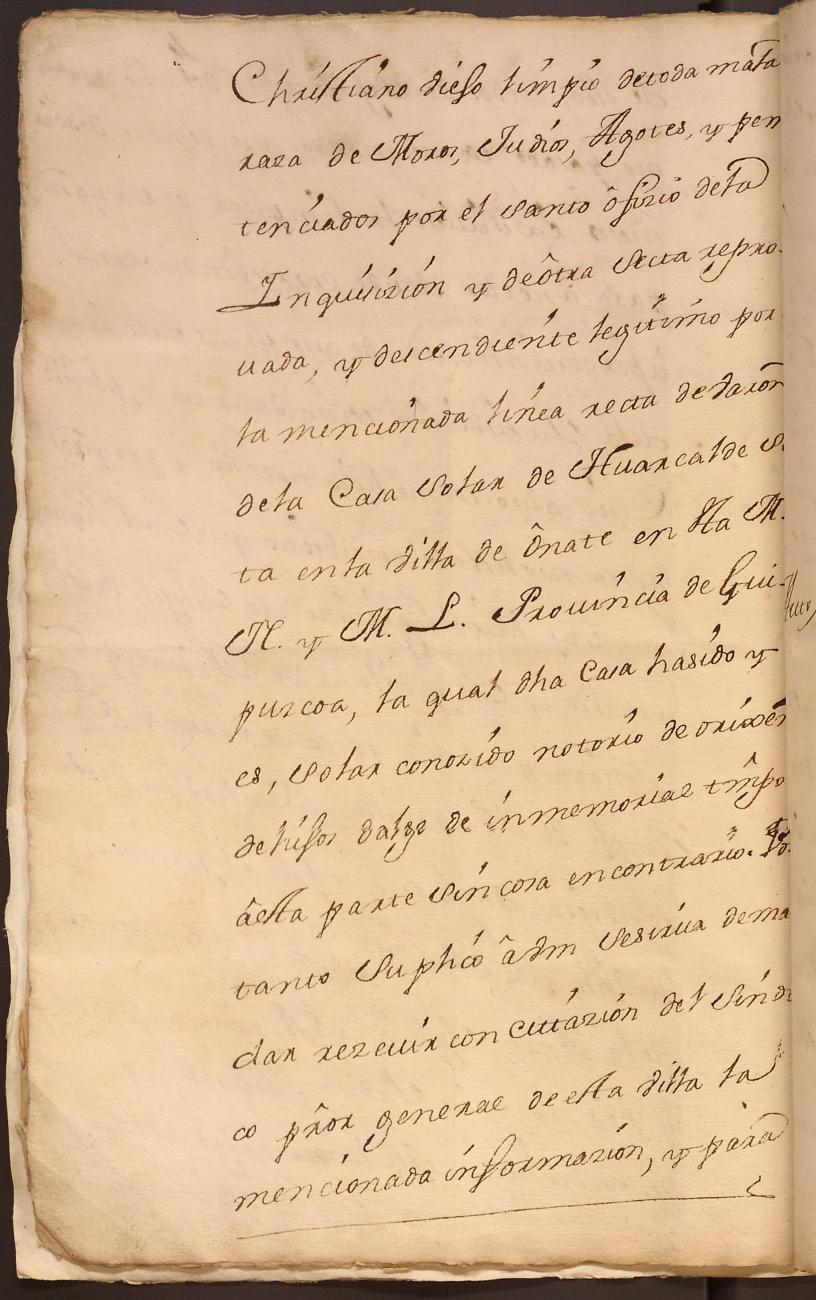 Christiano viejo limpio de toda mala
raza de Moros, Judios, Agotes, y peni
tenciados por el Santo ôfizio dela
Inquisizión y de ôtra Secta repro-
uada, y descendiente legitimo por
la mencionada linea recta de Varon
dela Casa Solar de Huarcalde Si
ta en la Villa de ôñate en esta M.
N. y M. L. Prouincia de Gui-
puzcoa, la qual dha Casa ha sido y
es, Solar conozido notorio de orixen
de hijos dalgo de inmemorial tiñpo
âesta parte sin cosa en contrario. Por
tanto Suplicó â Vm se sirua de man
dar rezeuir con Cittazión del Sindi
co prôr general de esta Villa la
mencionada informazión, y para